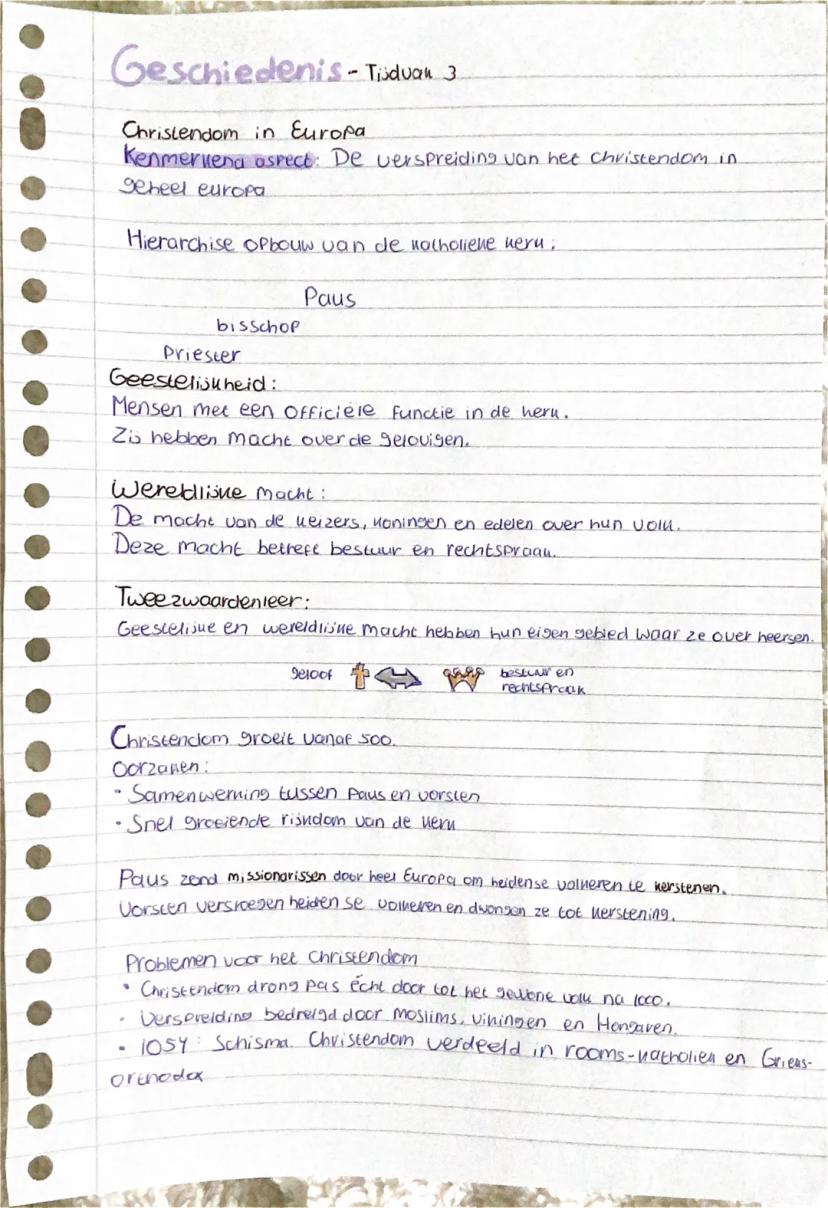 Geschiedenis - Tijdvak 3
Christendom in Europa
Kenmerkend aspect: De verspreiding van het christendom in
geheel europa
Hierarchise opbouw van de katholieke kerk:
Paus
bisschop
Priester
Geestelijkheid:
Mensen met een officiële functie in de kerk.
Zij hebben macht over de gelovigen.
Wereldlijke macht:
De macht van de keizers, koningen en edelen over hun volk.
Deze macht betreft bestuur en rechtspraak.
Tweezwaardenleer:
Geestelijke en wereldlijke macht hebben hun eigen gebied waar ze over heersen.
geloof bestuur en
rechtspraak
Christendom groeit vanaf 500.
Oorzaken:
• Samenwerking tussen Paus en vorsten
• Snel groeiende rijkdom van de kerk
Paus zond missionarissen door heel Europa om heidense volkeren te kerstenen.
Vorsten versloegen heidense volkeren en dwongen ze tot kerstening.
Problemen voor het Christendom
• Christendom drong pas écht door tot het gewone volk na 1000.
• Verspreiding bedreigd door moslims, vikingen en Hongaren.
• 1054: Schisma. Christendom verdeeld in rooms-katholiek en Grieks-
orthodox